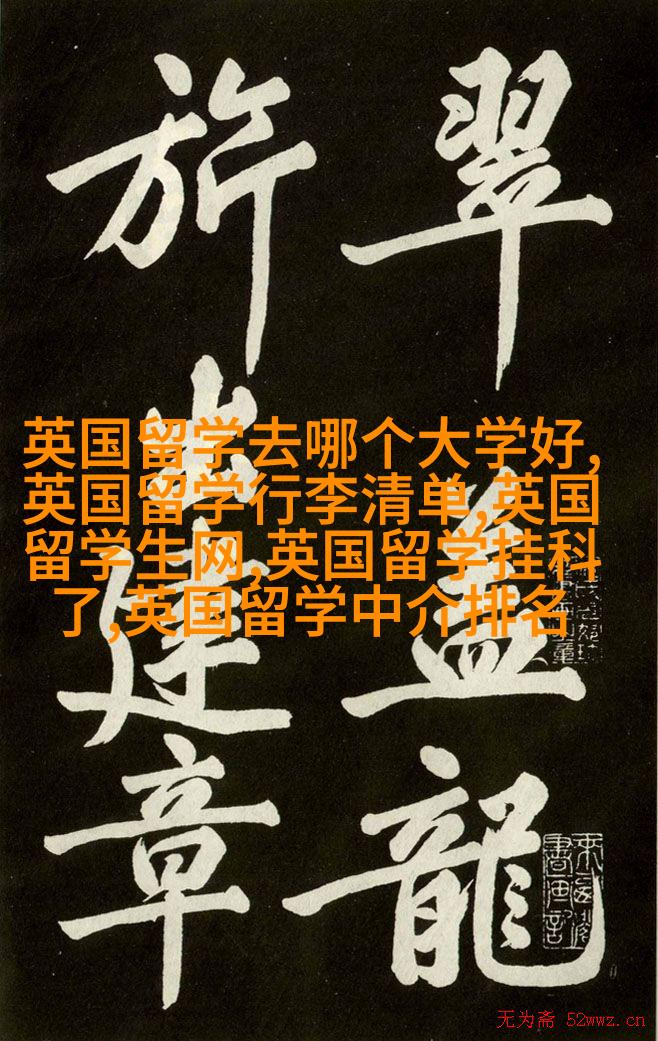 翠盖龍
旂出建章
英国留学去哪个大学好,
英国留学行李清单,英国
留学生网,英国留学挂科
了,英国留学中介排名
无为斋 52wwz.cn